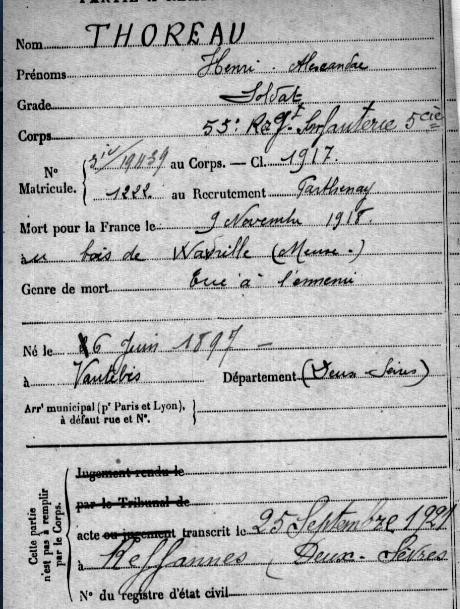 Nom THOREAU
Prénoms Henri Alexandre
Grade Soldat
Corps 55e Regt Infanterie 5 cie
N° Matricule. 11439 au Corps. — Cl. 1917.
1222 au Recrutement Parthenay
Mort pour la France le 9 Novembre 1918.
au bois de Wavrille (Meuse.)
Genre de mort Tué à l'ennemi
Né le 6 Juin 1897 -
à Vautebis Département (Deux-Sèvres)
Arrt municipal (pr Paris et Lyon),
à défaut rue et N°.
Cette partie
n'est pas à remplir
par le Corps.
Jugement rendu le
par le Tribunal de
acte ou jugement transcrit le 25 Septembre 1921
à Reffannes Deux-Sèvres
N° du registre d'état civil